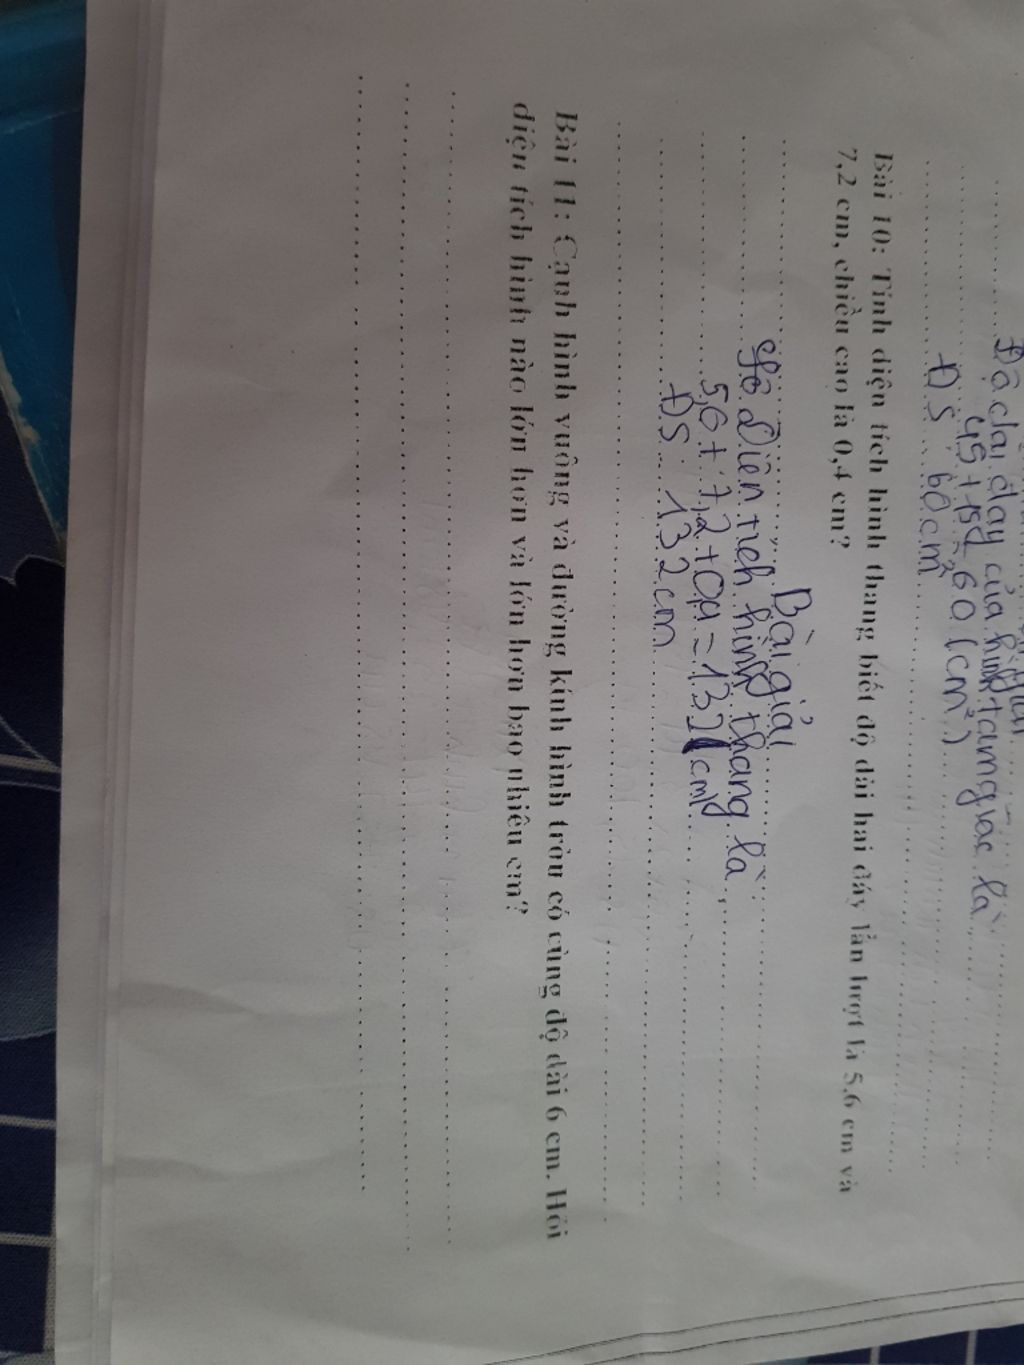 Độ dài đáy của hình tam giác là
45 + 15 = 60 (cm²)
ĐS 60 cm²
Bài 10: Tính diện tích hình thang biết độ dài hai đáy lần lượt là 5,6 cm và
7,2 cm, chiều cao là 0,4 cm?
Bài giải
Diên tich hình thang là
5,6 + 7,2 + 0,4 = 132 (cm)
ĐS 132 cm
Bài 11: Cạnh hình vuông và đường kính hình tròn có cùng độ dài 6 cm. Hỏi
diện tích hình nào lớn hơn và lớn hơn bao nhiêu cm?